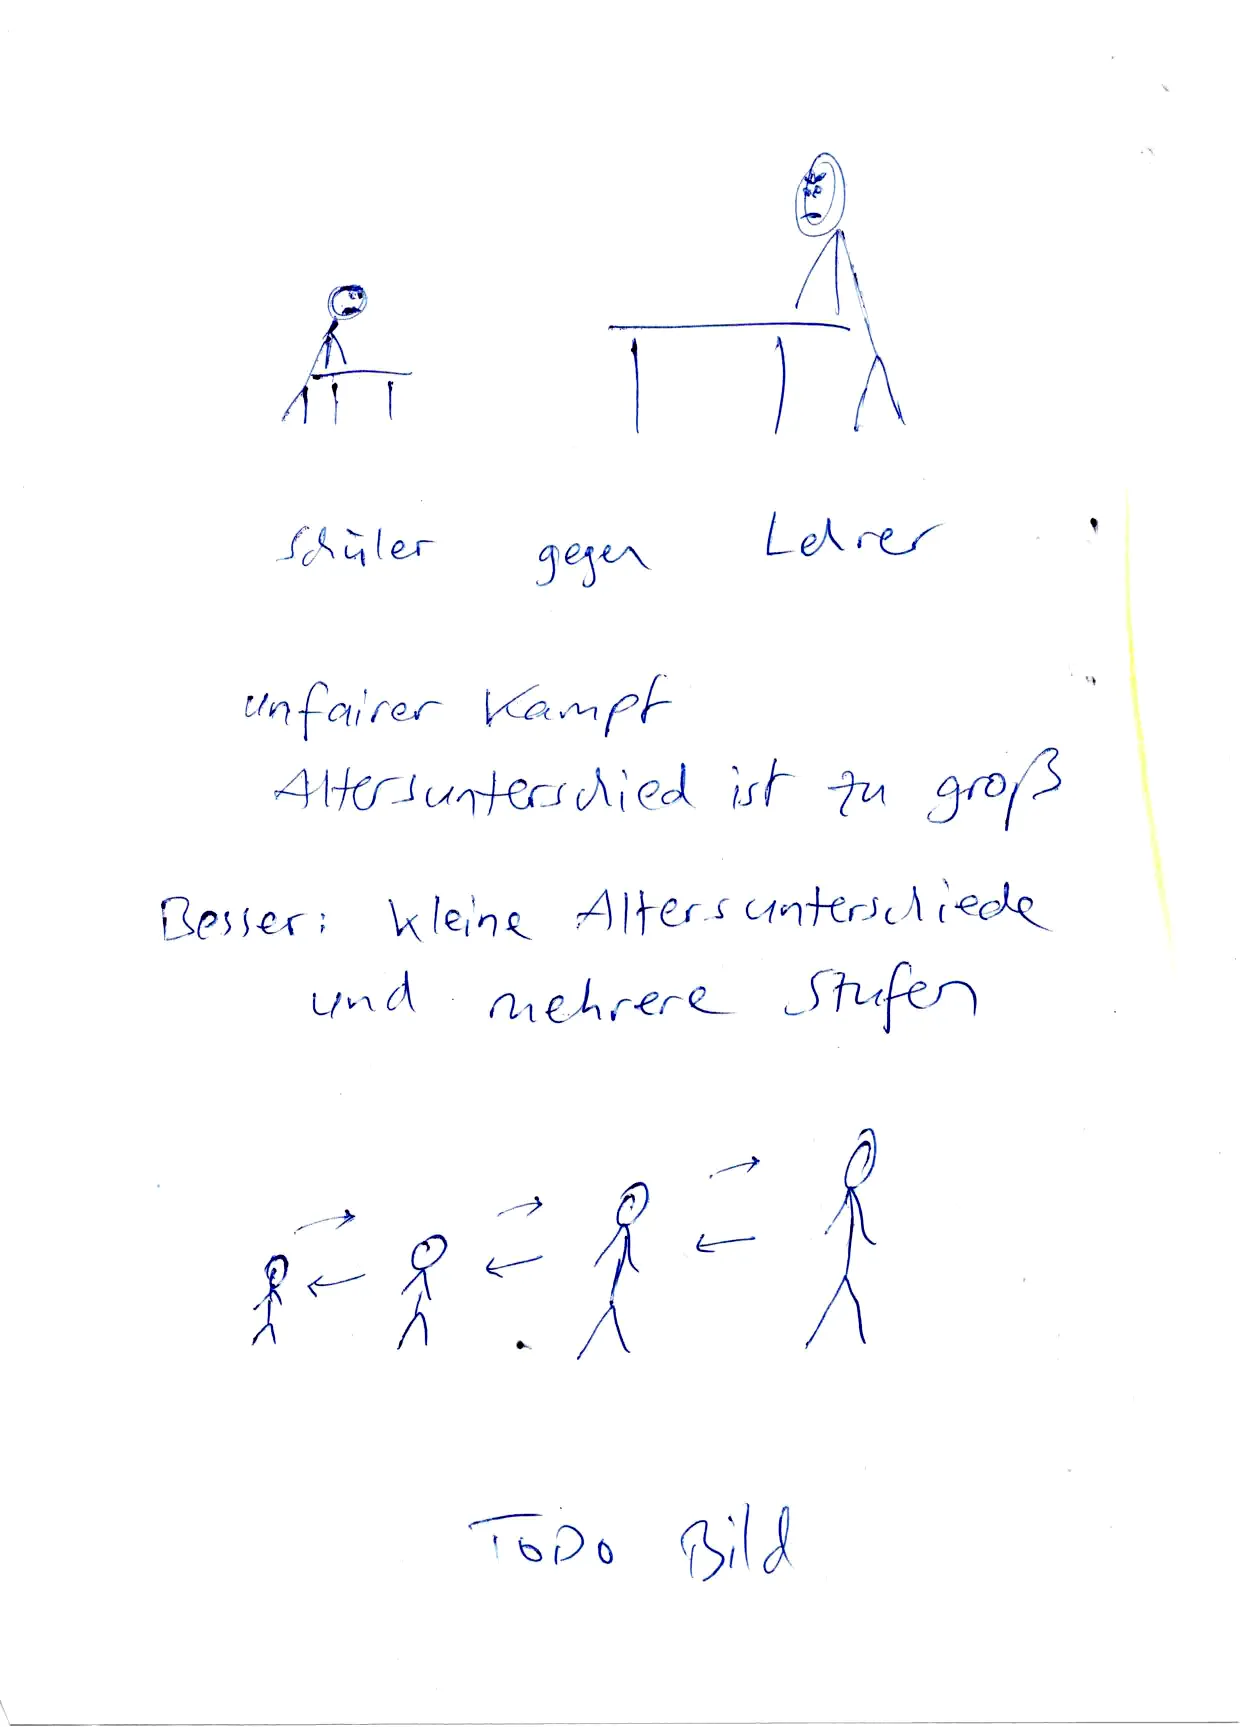 Schüler gegen Lehrer
unfairer Kampf
Altersunterschied ist zu groß
Besser: kleine Altersunterschiede
und mehrere Stufen
TODO Bild